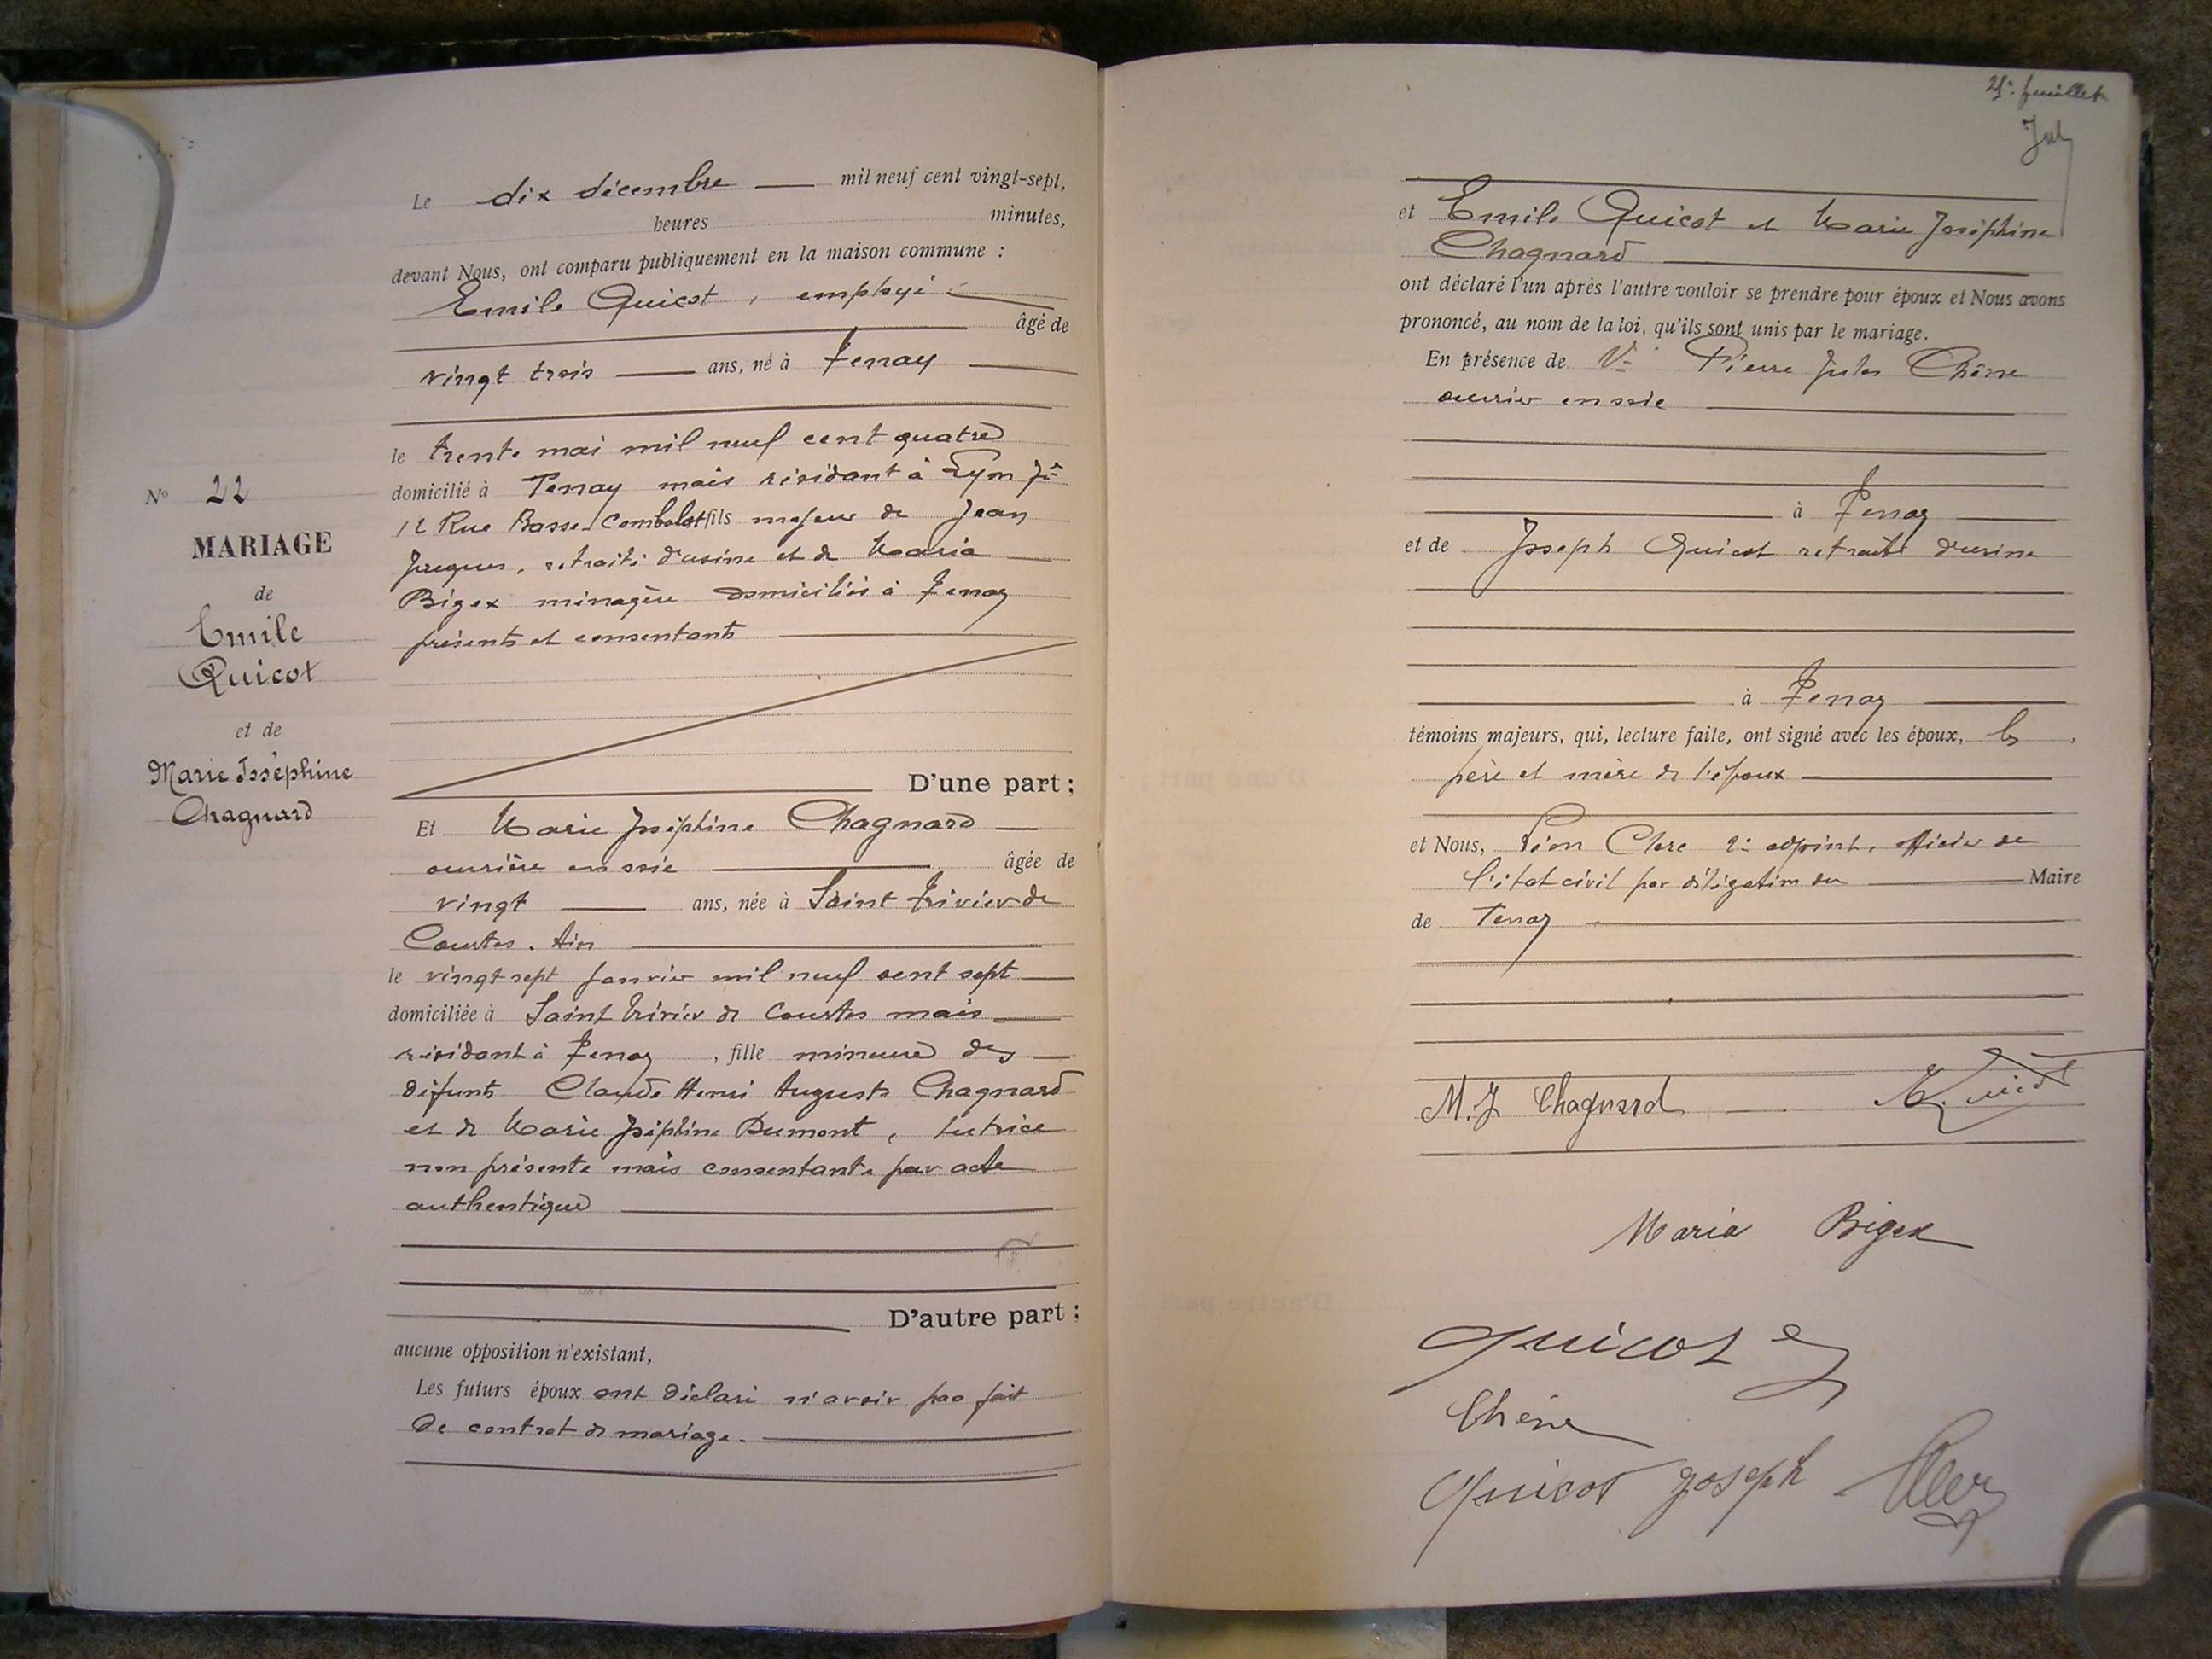 Le dix décembre mil neuf cent vingt-sept,
heures minutes,
devant Nous, ont comparu publiquement en la maison commune :
Emile Quicot, employé
âgé de
vingt trois ans, né à Tenay
le trente mai mil neuf cent quatre
domicilié à Tenay mais résidant à Lyon 7e
12 Rue Basse Combalot fils majeur de Jean
Jacques, retraité d'usine et de Maria
Bigex ménagère domiciliés à Tenay
présents et consentants
D'une part ;
Nº 22
MARIAGE
de
Emile
Quicot
et de
Marie Joséphine
Chagnard
Et Marie Joséphine Chagnard
ouvrière en soie âgée de
vingt ans, née à Saint Trivier de
Courtes. Ain
le vingt sept janvier mil neuf cent sept
domiciliée à Saint Trivier de Courtes mais
résidant à Tenay, fille mineure des
défunts Claude Henri Auguste Chagnard
et de Marie Joséphine Dumont, tutrice
non présente mais consentante par acte
authentique
D'autre part ;
aucune opposition n'existant,
Les futurs époux ont déclaré n'avoir pas fait
de contrat de mariage.
21e feuillet
et Emile Quicot et Marie Joséphine
Chagnard
ont déclaré l'un après l'autre vouloir se prendre pour époux et Nous avons
prononcé, au nom de la loi, qu'ils sont unis par le mariage.
En présence de Pierre Jules Chêne
ouvrier en soie
à Tenay
et de Joseph Quicot retraité d'usine
à Tenay
témoins majeurs, qui, lecture faite, ont signé avec les époux, les
père et mère de l'époux
et Nous, Léon Clerc 2e adjoint, officier de
l'état civil par délégation du Maire
de Tenay
M. J Chagnard E. Quicot
Maria Bigex
Quicot
Chêne
Quicot Joseph Clerc